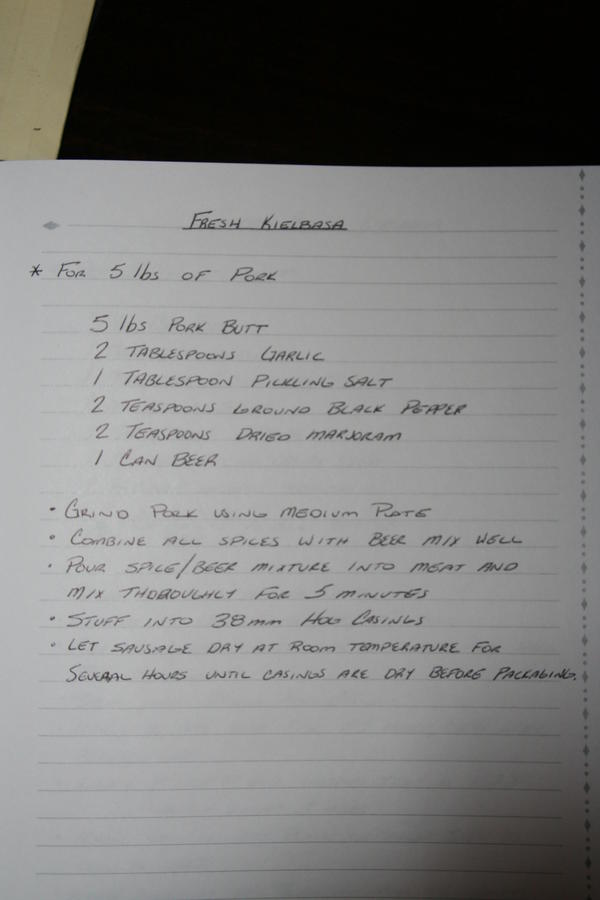 FRESH KIELBASA
* FOR 5 lbs OF PORK
5 lbs PORK BUTT
2 TABLESPOONS GARLIC
1 TABLESPOON PICKLING SALT
2 TEASPOONS GROUND BLACK PEPPER
2 TEASPOONS DRIED MARJORAM
1 CAN BEER
• GRIND PORK USING MEDIUM PLATE
• COMBINE ALL SPICES WITH BEER MIX WELL
• POUR SPICE/BEER MIXTURE INTO MEAT AND
MIX THOROUGHLY FOR 5 MINUTES
• STUFF INTO 38mm HOG CASINGS
• LET SAUSAGE DRY AT ROOM TEMPERATURE FOR
SEVERAL HOURS UNTIL CASINGS ARE DRY BEFORE PACKAGING.